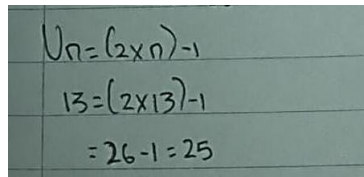 Un=(2×n)-1
13=(2×13)-1
=26-1=25